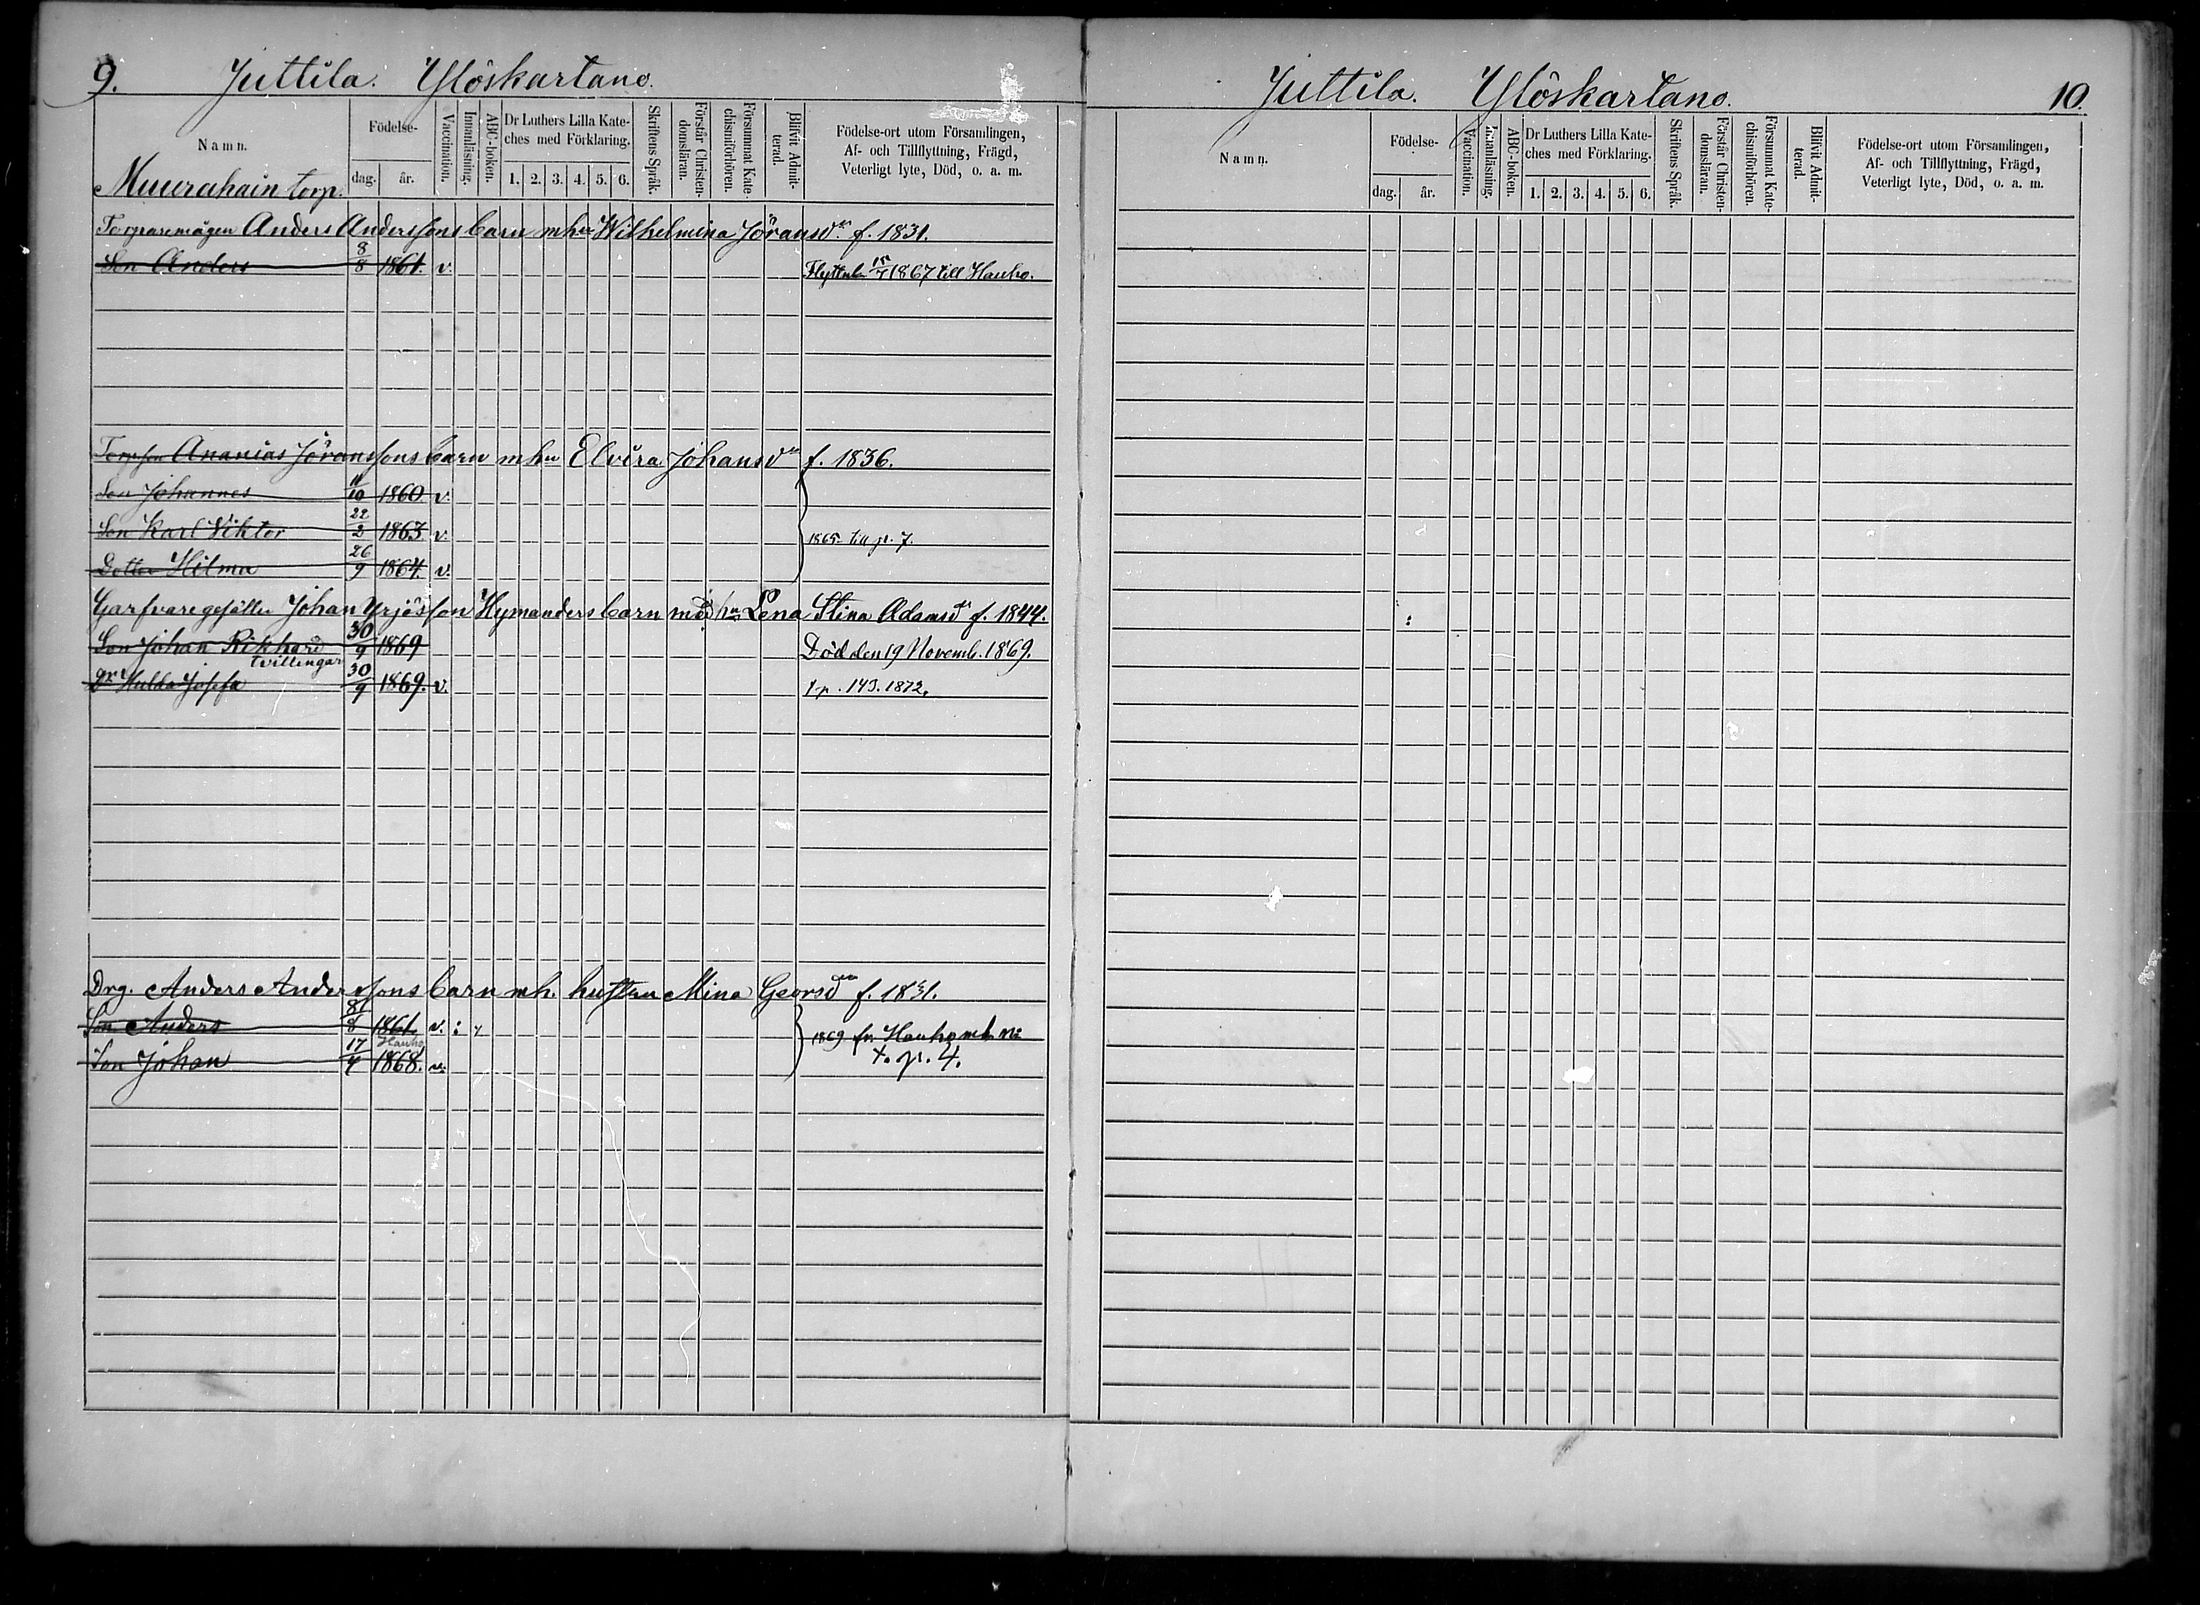 9. Juttila. Ylöskartano.
Namn.
Födelse-
dag. år.
Vaccination.
Innanläsning.
ABC-boken.
Dr Luthers Lilla Kate-
ches med Förklaring.
1. 2. 3. 4. 5. 6.
Skriftens Språk.
Förstår Christen-
domsläran.
Försummat Kate-
chismiförhören.
Blifvit Admit-
terad.
Födelse-ort utom Församlingen,
Af- och Tillflyttning, Frägd,
Veterligt lyte, Död, o. a. m.
Muurahain torp.
Torparemågen Anders Anderssons barn mhu Wilhelmina Jöransdr f. 1831.
Son Anders 8/8 1861. v. 1867 till Hauho.
Ananias Jöranssons barn mhu Elvira Johansdr f. 1836.
Son Johannes 11/10 1860 v.
Son Karl Viktor 22/2 1863 v. 1865 till p. 7.
Dotter Hilma 26/9 1864. v.
Garfvaregesällen Johan Yrjösson Hymanders barn med hu Lena Stina Adamsdr f. 1844.
Son Johan Rikhard 30/9 1869 Död den 19 Novemb. 1869.
tvillingar
Hulda Josefa 30/9 1869. v. p. 143. 1872.
Drg. Anders Anderssons barn mh. hustru Mina Georsdr f. 1831.
Son Anders 8/8 1861. v. 1869 fr. Hauho
Hauho
Son Johan 17/4 1868. v. t. p. 4.
Juttila. Ylöskartano. 10.
Namn.
Födelse-
dag. år.
Vaccination.
Innanläsning.
ABC-boken.
Dr Luthers Lilla Kate-
ches med Förklaring.
1. 2. 3. 4. 5. 6.
Skriftens Språk.
Förstår Christen-
domsläran.
Försummat Kate-
chismiförhören.
Blifvit Admit-
terad.
Födelse-ort utom Församlingen,
Af- och Tillflyttning, Frägd,
Veterligt lyte, Död, o. a. m.